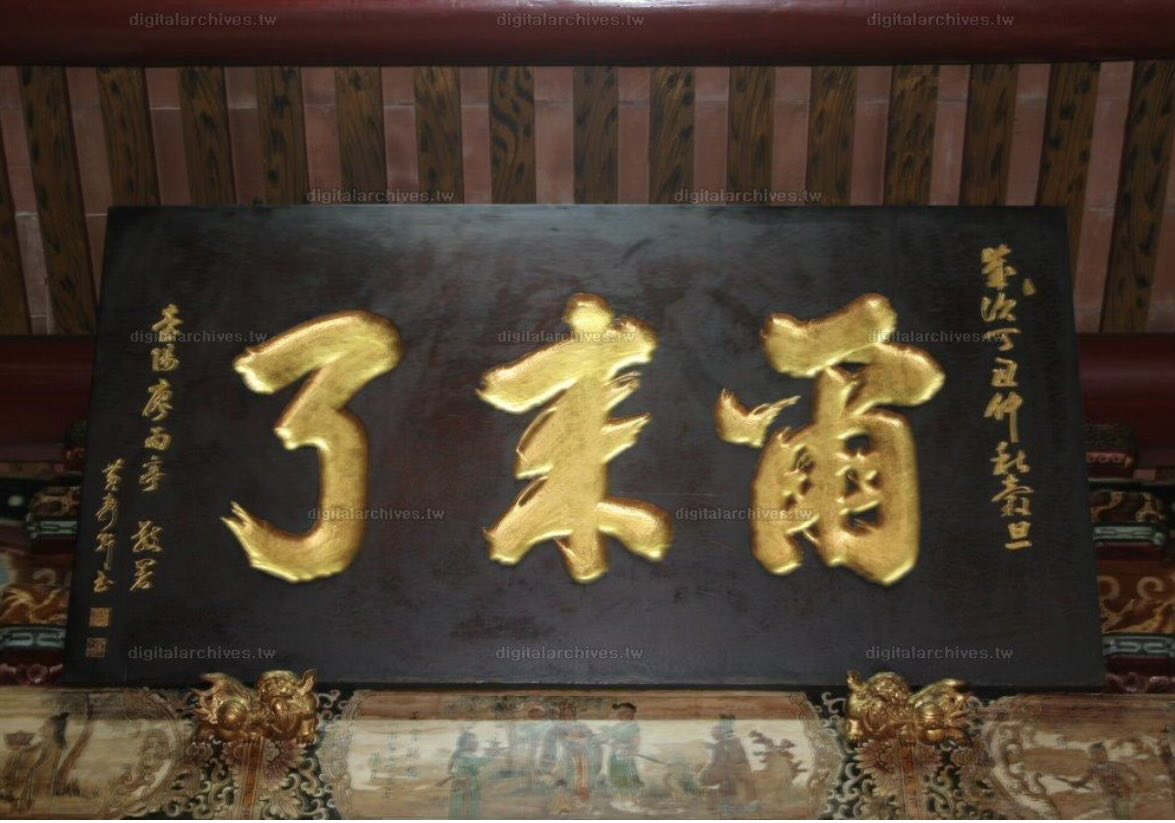 digitalarchives.tw digitalarchives.tw digitalarchives.tw
digitalarchives.tw digitalarchives.tw
歲次丁丑仲秋穀旦
爾來了
廖雨亭 敬
書
digitalarchives.tw digitalarchives.tw digitalarchives.tw
digitalarchives.tw digitalarchives.tw
digitalarchives.tw digitalarchives.tw digitalarchives.tw